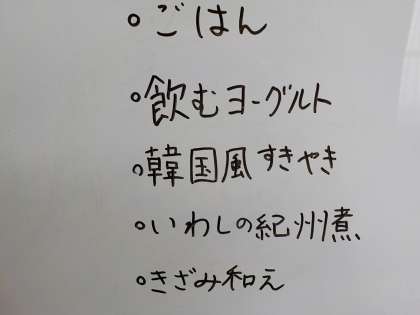 ○ごはん
○飲むヨーグルト
○韓国風すきやき
○いわしの紀州煮
○きざみ和え